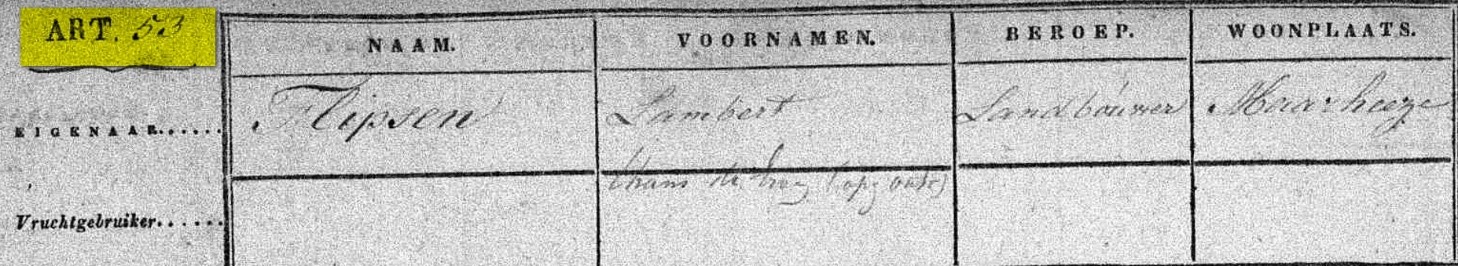 ART. 53
NAAM. VOORNAMEN. BEROEP. WOONPLAATS.
EIGENAAR...... Flipsen Lambert Landbouwer Maarheeze
thans de
Vruchtgebruiker......